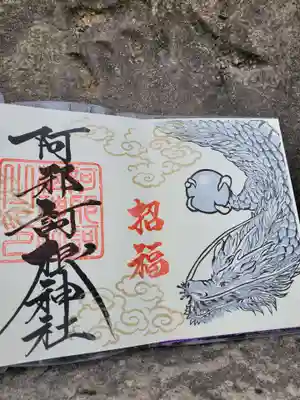 阿邪訶根神社
招福